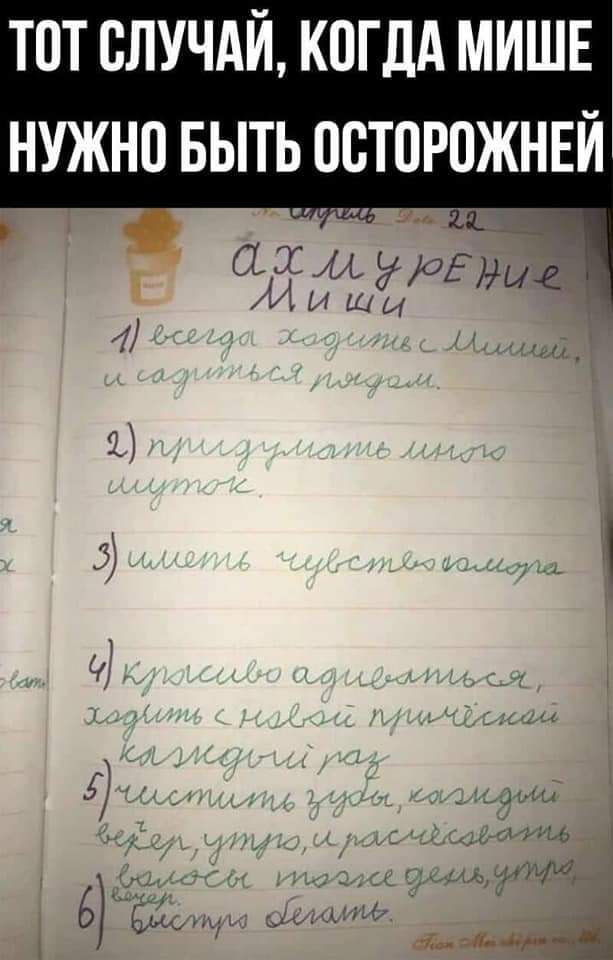 ТОТ СЛУЧАЙ, КОГДА МИШЕ
НУЖНО БЫТЬ ОСТОРОЖНЕЙ
No. Апрель Date 22
ахмурЕние
Миши
1) всегда ходить с Мишей,
и садиться рядом.
2) придумать много
шуток.
3) иметь чувство юмора
4) красиво адиваться,
ходить с новой причёской
каждый раз
5) чистить зубы, каждый
вечер, утро, и расчёсовать
волосы тоже день, утро,
вечер.
6) быстро бегать.
я
х